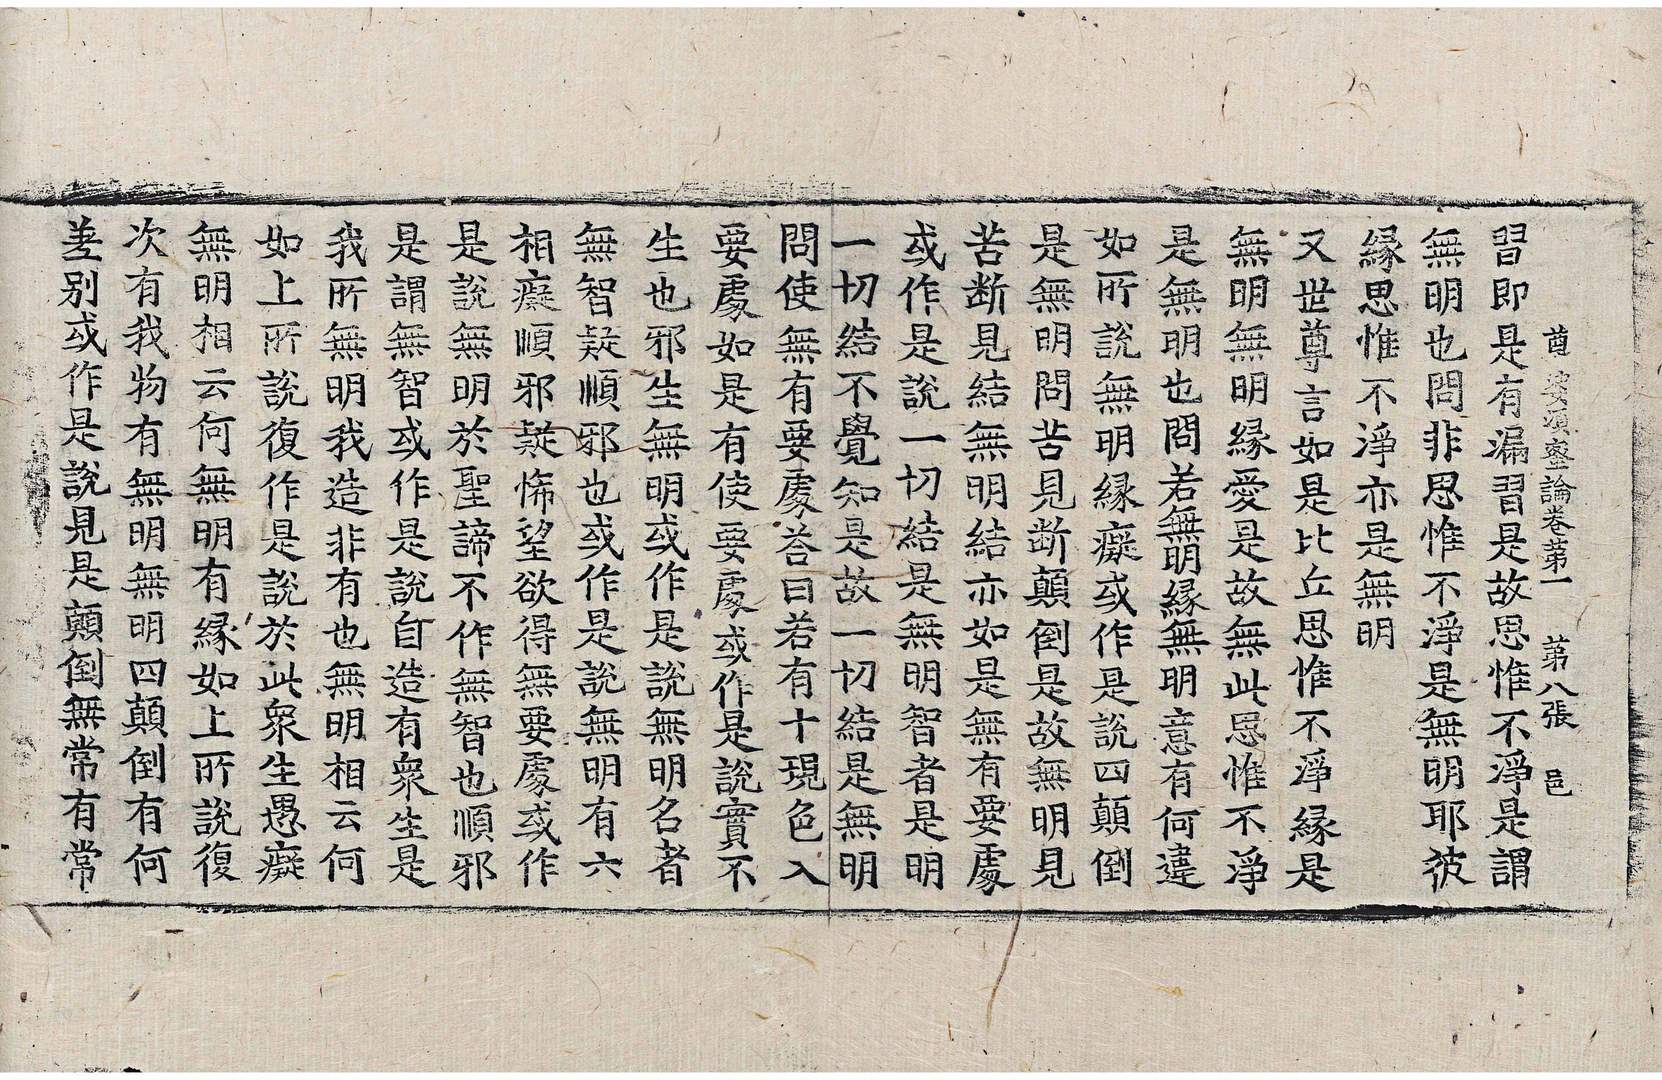 尊婆須蜜論卷第一　第八張　邑
習即是有漏習是故思惟不淨是謂
無明也問非思惟不淨是無明耶彼
緣思惟不淨亦是無明
又世尊言如是比丘思惟不淨緣是
無明無明緣愛是故無此思惟不淨
是無明也問若無明緣無明意有何違
如所說無明緣癡或作是說四顛倒
是無明問苦見斷顛倒是故無明見
苦斷見結無明結亦如是無有要處
或作是說一切結是無明智者是明
一切結不覺知是故一切結是無明
問使無有要處荅曰若有十現色入
要處如是有使要處或作是說實不
生也邪生無明或作是說無明名者
無智疑順邪也或作是說無明有六
相癡順邪疑悕望欲得無要處或作
是說無明於聖諦不作無智也順邪
是謂無智或作是說自造有衆生是
我所無明我造非有也無明相云何
如上所說復作是說於此衆生愚癡
無明相云何無明有緣如上所說復
次有我物有無明無明四顛倒有何
差別或作是說見是顛倒無常有常